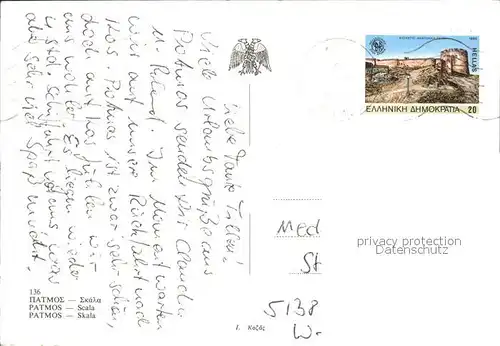 Liebe Tante
Viele Urlaubsgrüße aus
Patmos senden Dir Claudia
Im Moment warten
wir auf unsere Rückfahrt nach
Kos. Patmos ist zwar sehr schön,
doch auf Kos fühlen wir
uns wohler. Es liegen wieder
Std. Schiffahrt vor uns, was
aber sehr viel Spaß macht.
HELLAS
ΕΛΛΗΝΙΚΗ ΔΗΜΟΚΡΑΤΙΑ 20
Med
St
5138
W-
privacy protection
Datenschutz
136
ΠΑΤΜΟΣ — Σκάλα
PATMOS — Scala
PATMOS — Skala
Ι. Κοζάς